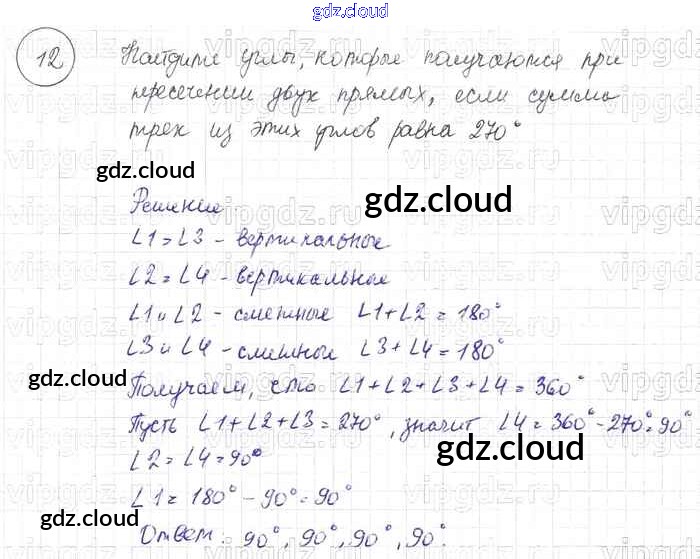 gdz.cloud
12 Найдите углы, которые получаются при
пересечении двух прямых, если сумма
трех из этих углов равна 270°
gdz.cloud
gdz.cloud
Решение
∠1=∠3 - вертикальные
∠2=∠4 - вертикальные
∠1 и ∠2 - смежные ∠1+∠2=180°
∠3 и ∠4 - смежные ∠3+∠4=180°
gdz.cloud
Получаем, что ∠1+∠2+∠3+∠4=360°
Пусть ∠1+∠2+∠3=270°, значит ∠4=360°-270°=90°
gdz.cloud
∠2=∠4=90°
∠1=180°-90°=90°
gdz.cloud
Ответ: 90°, 90°, 90°, 90°.